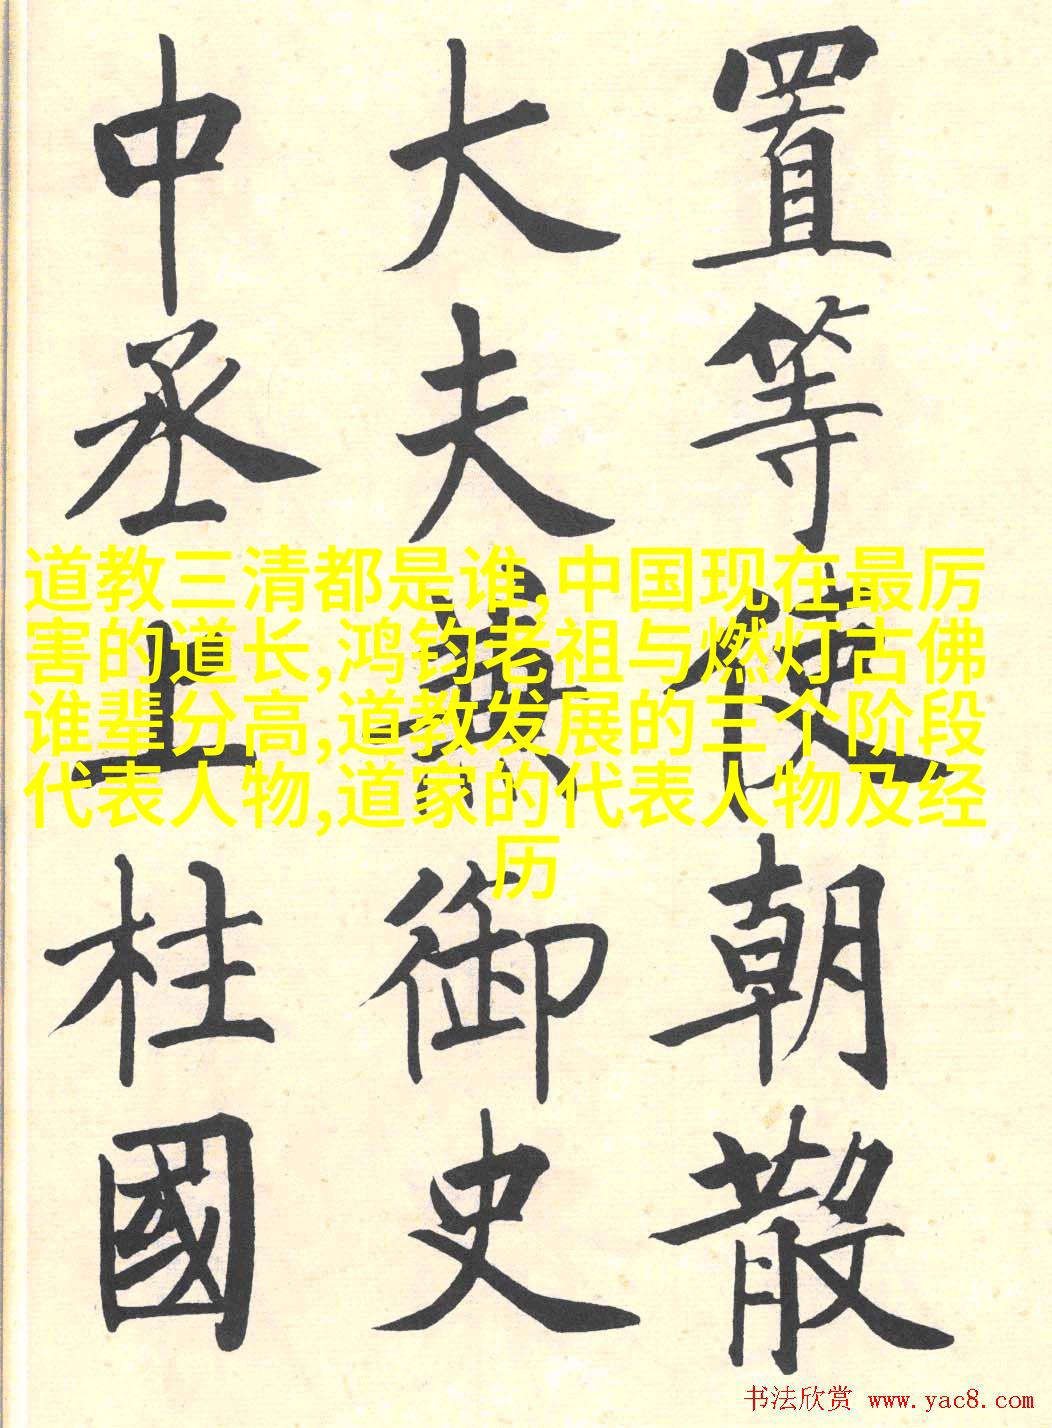 置等使朝散
大夫兼御史
中丞上柱國
道教三清都是谁,中国现在最厉
害的道长,鸿钧老祖与燃灯古佛
谁辈分高,道教发展的三个阶段
代表人物,道家的代表人物及经
历
书法欣赏 www.yac8.com